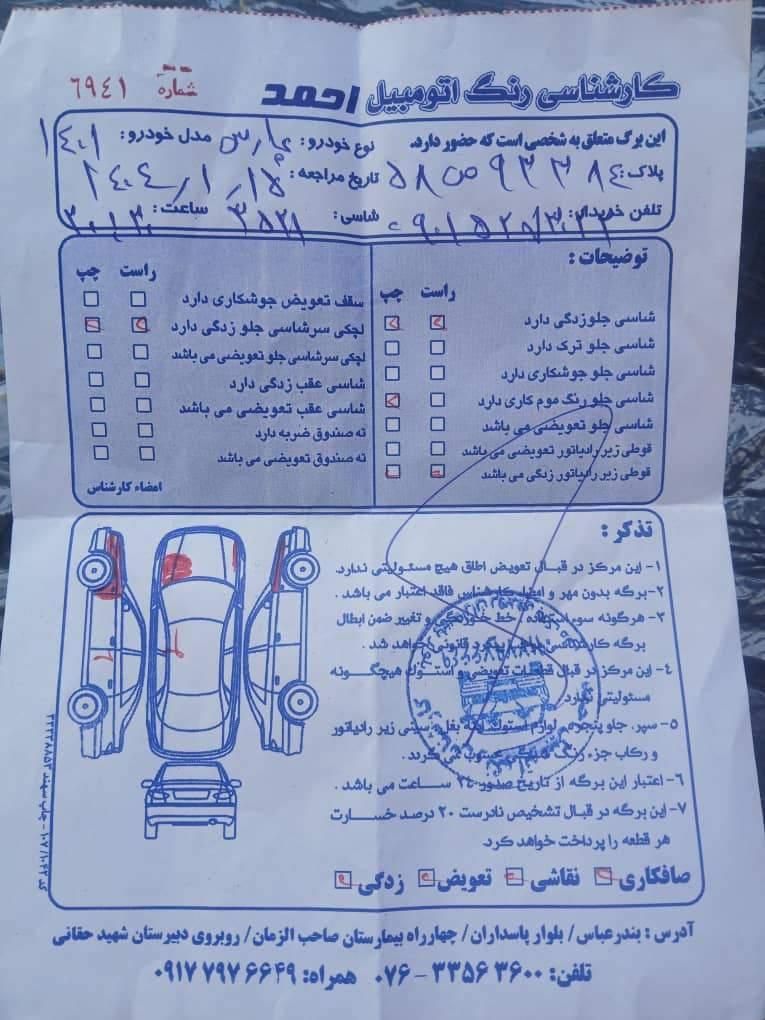 کارشناسی رنگ اتومبیل احمد
شماره ٦٩٤١
این برگ متعلق به شخصی است که حضور دارد.
نوع خودرو: پارس مدل خودرو: ۱۴۰۱
پلاک:
تاریخ مراجعه:
تلفن خریدار:
شاسی: ۳۵۲۸
ساعت:
توضیحات:
راست چپ
شاسی جلو زدگی دارد
شاسی جلو ترک دارد
شاسی جلو جوشکاری دارد
شاسی جلو رنگ موم کاری دارد
شاسی جلو تعویضی می باشد
قوطی زیر رادیاتور تعویضی می باشد
قوطی زیر رادیاتور زدگی می باشد
راست چپ
سقف تعویض جوشکاری دارد
لچکی سرشاسی جلو زدگی دارد
لچکی سرشاسی جلو تعویضی می باشد
شاسی عقب زدگی دارد
شاسی عقب تعویضی می باشد
ته صندوق ضربه دارد
ته صندوق تعویضی می باشد
امضاء کارشناس
تذکر:
۱- این مرکز در قبال تعویض اطاق هیچ مسئولیتی ندارد.
۲- برگه بدون مهر و امضا کارشناس فاقد اعتبار می باشد.
۳- هرگونه سوء استفاده / خط خوردگی و تغییر ضمن ابطال
برگه کارشناسی قانونی خواهد شد.
۴- این مرکز در قبال قطعات تعویضی و استوک هیچگونه
مسئولیتی ندارد.
۵- سپر، جلو پنجره، لوازم استوک، سینی زیر رادیاتور
و رکاب جزء رنگ محسوب می گردند.
۶- اعتبار این برگه از تاریخ صدور ۲٤ ساعت می باشد.
۷- این برگه در قبال تشخیص نادرست ۲۰ درصد خسارت
هر قطعه را پرداخت خواهد کرد.
صافکاری نقاشی تعویض زدگی
آدرس: بندرعباس/ بلوار پاسداران/ چهارراه بیمارستان صاحب الزمان/ روبروی دبیرستان شهید حقانی
تلفن: ۳۳۵۶۳۶۰۰ - ۰۷۶ همراه: ۰۹۱۷۷۹۷۶۶۴۹